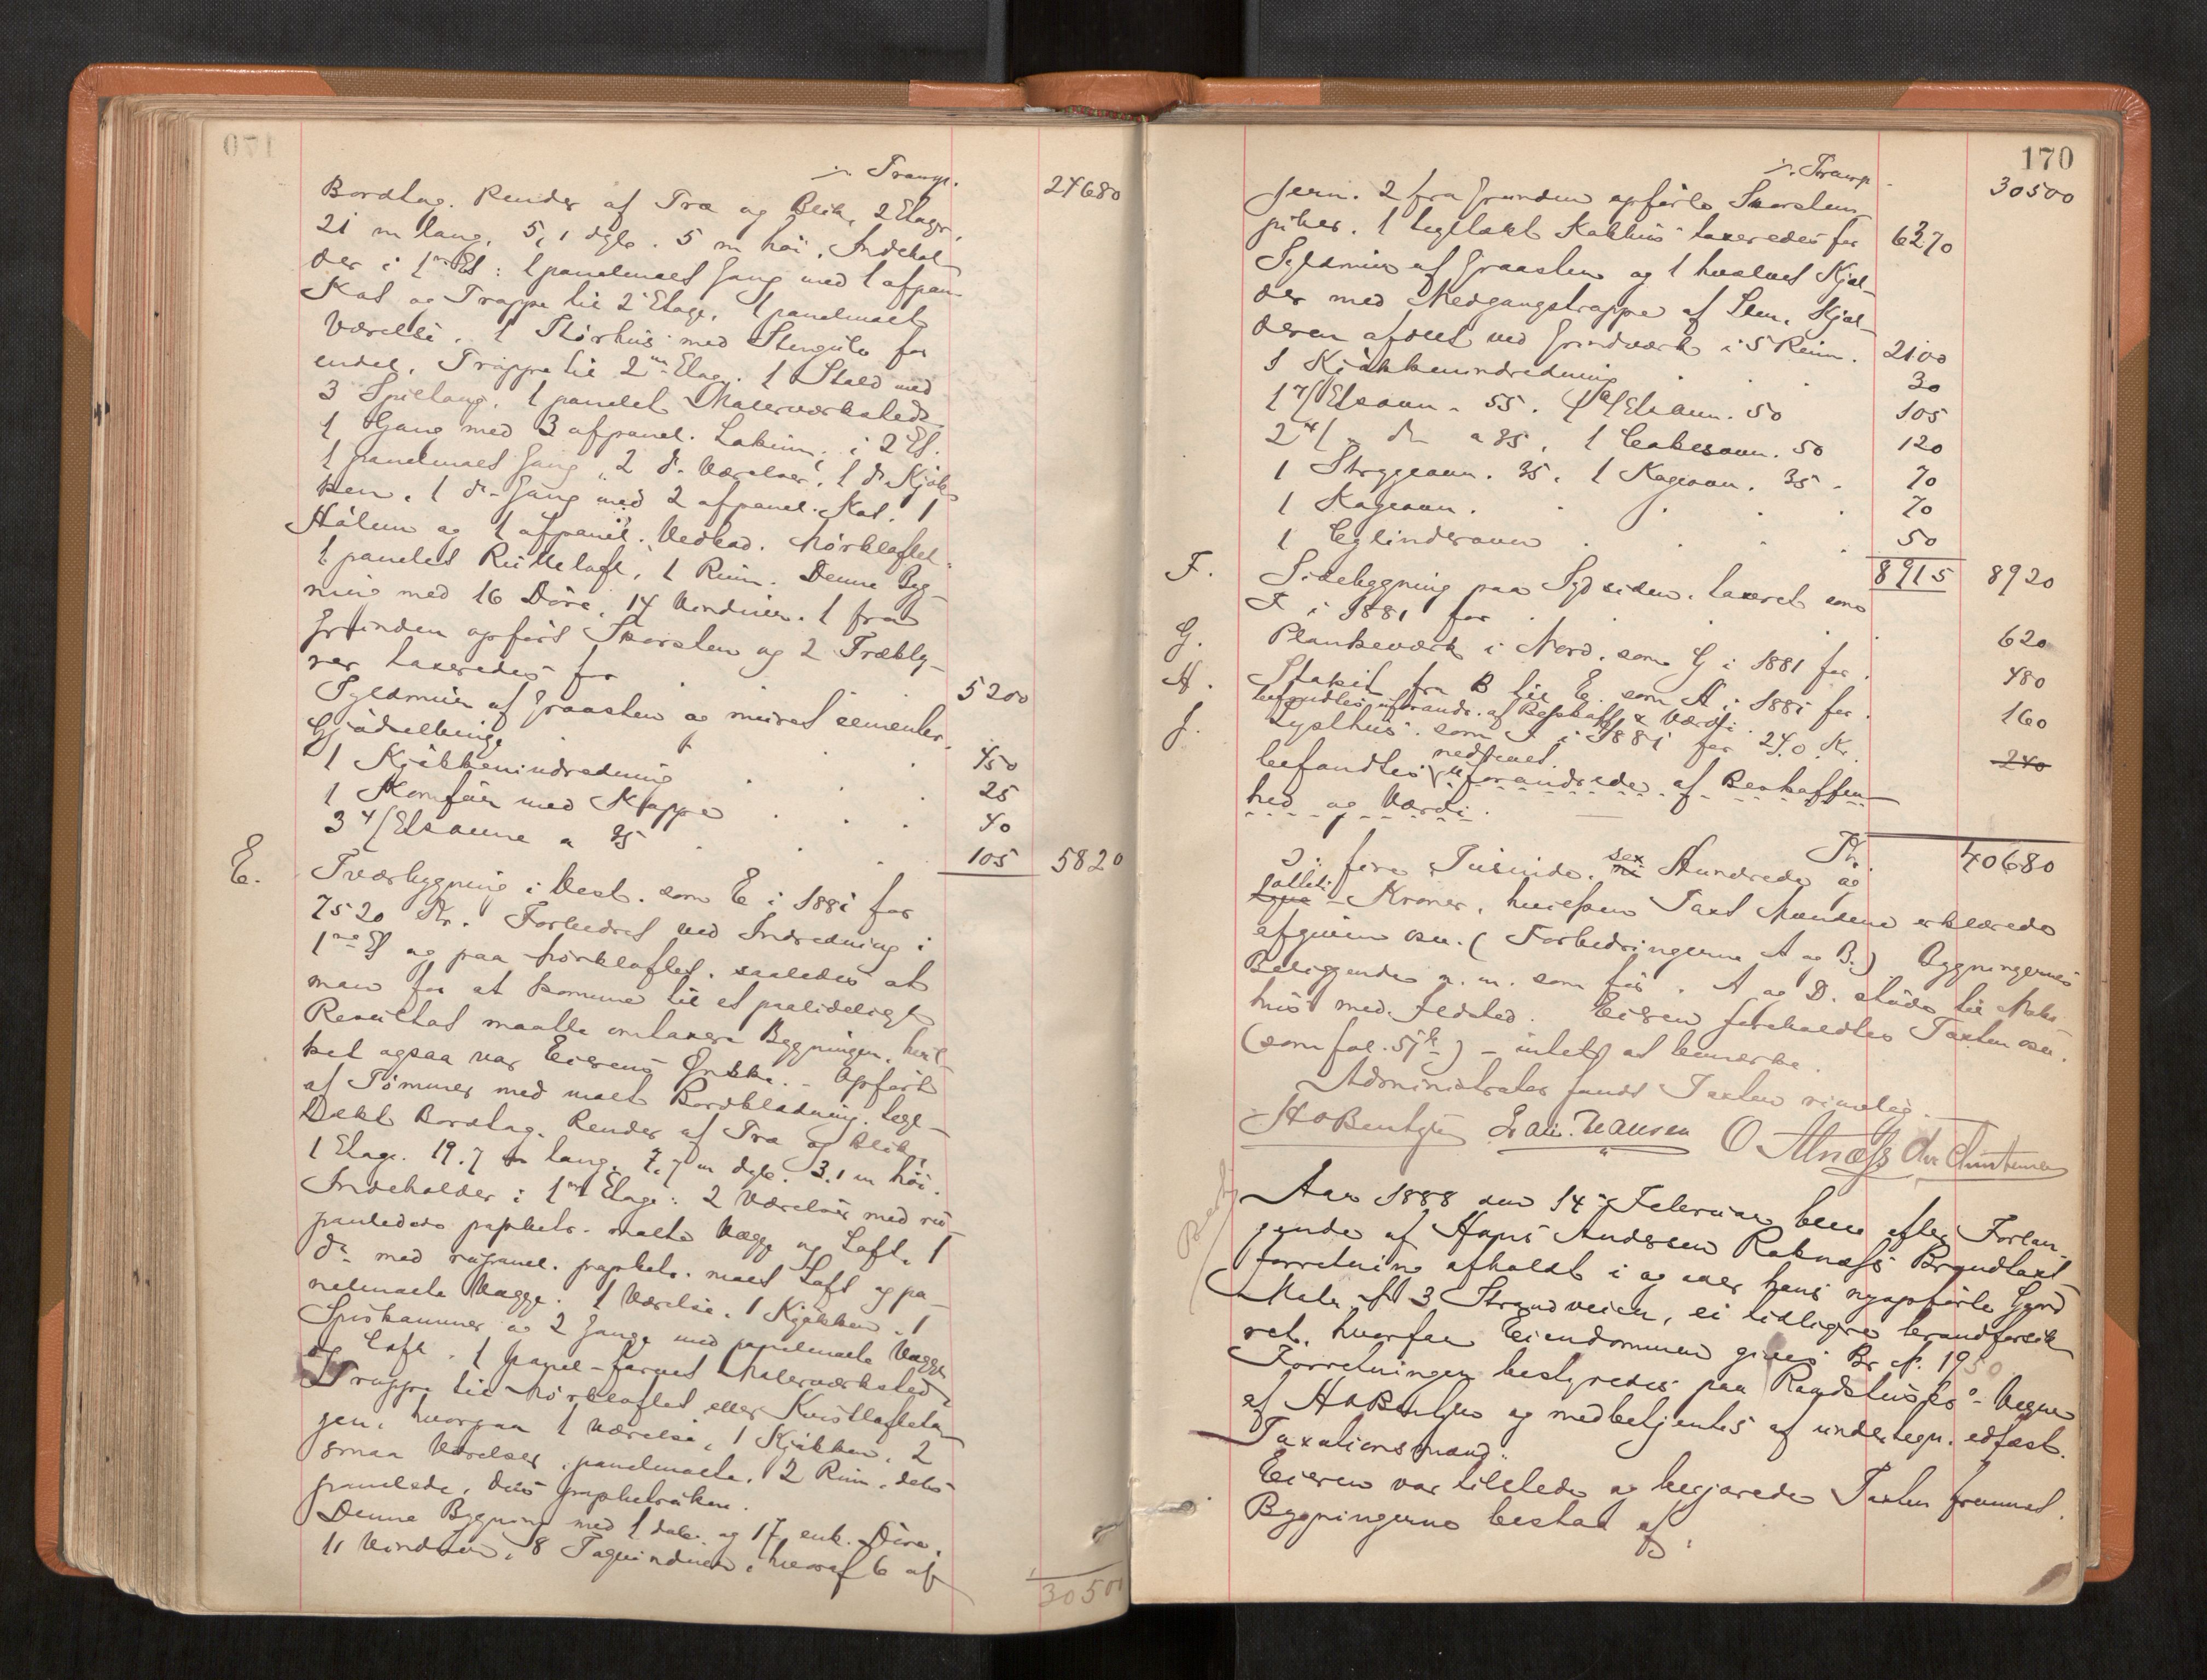 ÷ Transp. 24680
Bordtag. Render af Træ og Blik. 2 Etager.
21 m lang, 5,1 dyb. 5 m høi. Indehol-
der i 1ste Et: 1 panelmalt Gang med 1 afpan.
Kot og Trappe til 2 Etage. 1 panelmalt
Værelse. 1 Størhus med Stengulv for
endel. Trappe til 2den Etag. 1 Stald med
3 Spiltoug. 1 panelet Malerværksted
1 Gang med 3 afpanel. Lokum. i 2 Et.
1 panelmalt Gang, 2 do Værelser, 1 do Kjøk-
ken, 1 do Gang med 2 afpanel. Kot. 1
Hølem og 1 afpanel. Vedbod. Mørkloftet
1 panelet Rulleloft, 1 Rum. Denne Byg-
ning med 16 Døre, 14 Vinduer. 1 fra
Grunden opført Skorsten og 2 Træbly-
rer taxeredes for 5200
Syldmur af Graasten og muret cementer.
Gjødselbinge 450
1 Kjøkkenindredning 25
1 Komfur med Kappe 40
3 4/ Etsovne a 35 105 5820
E. Tværbygning i Vest. som E i 1881 for
7520 Kr. Forbedret ved Indredning i
1ste Et og paa Mørkloftet. saaledes at
man for at komme til et paalideligt
Resultat maatte omtaxere Bygningen, hvil-
ket ogsaa var Eierens Ønske. - Opført
af Tømmer med malt Bordklædning. tegl-
tækt Bordtag. Render af Træ og Blik.
1 Etage. 19.7 m lang. 7,7 m dyb. 3.1 m høi.
Indeholder i 1ste Etage: 2 Værelser med ru-
panlede papbetr. malte Vægge og Loft. 1
do med rupanel. papbetr. malt Loft og pa-
nelmalte Vægge. 1 Værelse. 1 Kjøkken. 1
Spiskammer og 2 Gange med panelmalte Vægge
og Loft. 1 panel-farvet Malerværksted
Trappe til Mørkloftet eller Kvistlofteta-
gen, hvorpaa 1 Værelse, 1 Kjøkken, 2
smaa Værelser, panelmalte. 2 Rum, dels
panelede, dels papbetrukne.
Denne Bygning med 1 dob. og 17 enk. Døre.
11 Vinduer, 8 Tagvinduer, hvoraf 6 af
30500
170
÷ Transp. 30500
Jern. 2 fra Grunden opførte Skorstens-
piber. 1 tegltækt Kakhus taxeredes for 6370
Syldmur af Graasten og 1 hvælvet Kjæl-
der med Nedgangstrappe af Sten. Kjæl-
deren afdelt ved Grindværk i 5 Rum. 2100
1 Kjøkkenindredning 30
1 7/ Etsovn. 55. 1 6/ Etsovn. 50 105
2 4/ do a 35, 1 Cakesovn. 50 120
1 Strygeovn. 35. 1 Kageovn. 35 - 70
1 Kageovn. 70
1 Cylinderovn 50
8915 8920
F. Sidebygning paa Sydsiden. taxeret som
F i 1881 for 620
G. Plankeværk i Nord. som G i 1881 for 480
H. Stakit fra B til E. som H i 1881 for 160
befandtes uforandr. af Beskaff. & Værdi.
J. Lysthus. som I i 1881 for 240 Kr. 240
nedrevet.
befandtes uforandrede af Beskaffen-
hed og Værdi.
Kr. 40680
sex
fire Tusinde, ni Hundrede og
otteti
tyve Kroner, hvilken Taxt Mændene erklærede
afgiven osv. (Forbedringerne A og B.) Bygningernes
Beliggende m. m. som før. A og D. støde til Nabo-
hus med Ildsted. Eieren foreholdtes Taxten osv.
(som fol. 57b) - intet at bemærke.
Administrator fandt Taxten rimelig.
H O Bentzen Lau. Hansen O Alnæss Chr Christensen
Aar 1888 den 14de Februar blev efter Forlan-
gende af Hans Andersen Raknæss Brandtaxt-
forretning afholdt i og over hans nyopførte Gaard
Matr. No 3 Strandveien, ei tidligere brandforsik
ret, hvorfor Eiendommen gives Br. No. 1950
Forretningen bestyredes paa Raadstuens Vegne
af H O Bentzen og medbetjentes af undertegn. edfæst.
Taxationsmænd.
Eieren var tilstede og begjærede Taxten fremmet.
Bygningerne bestaa af: